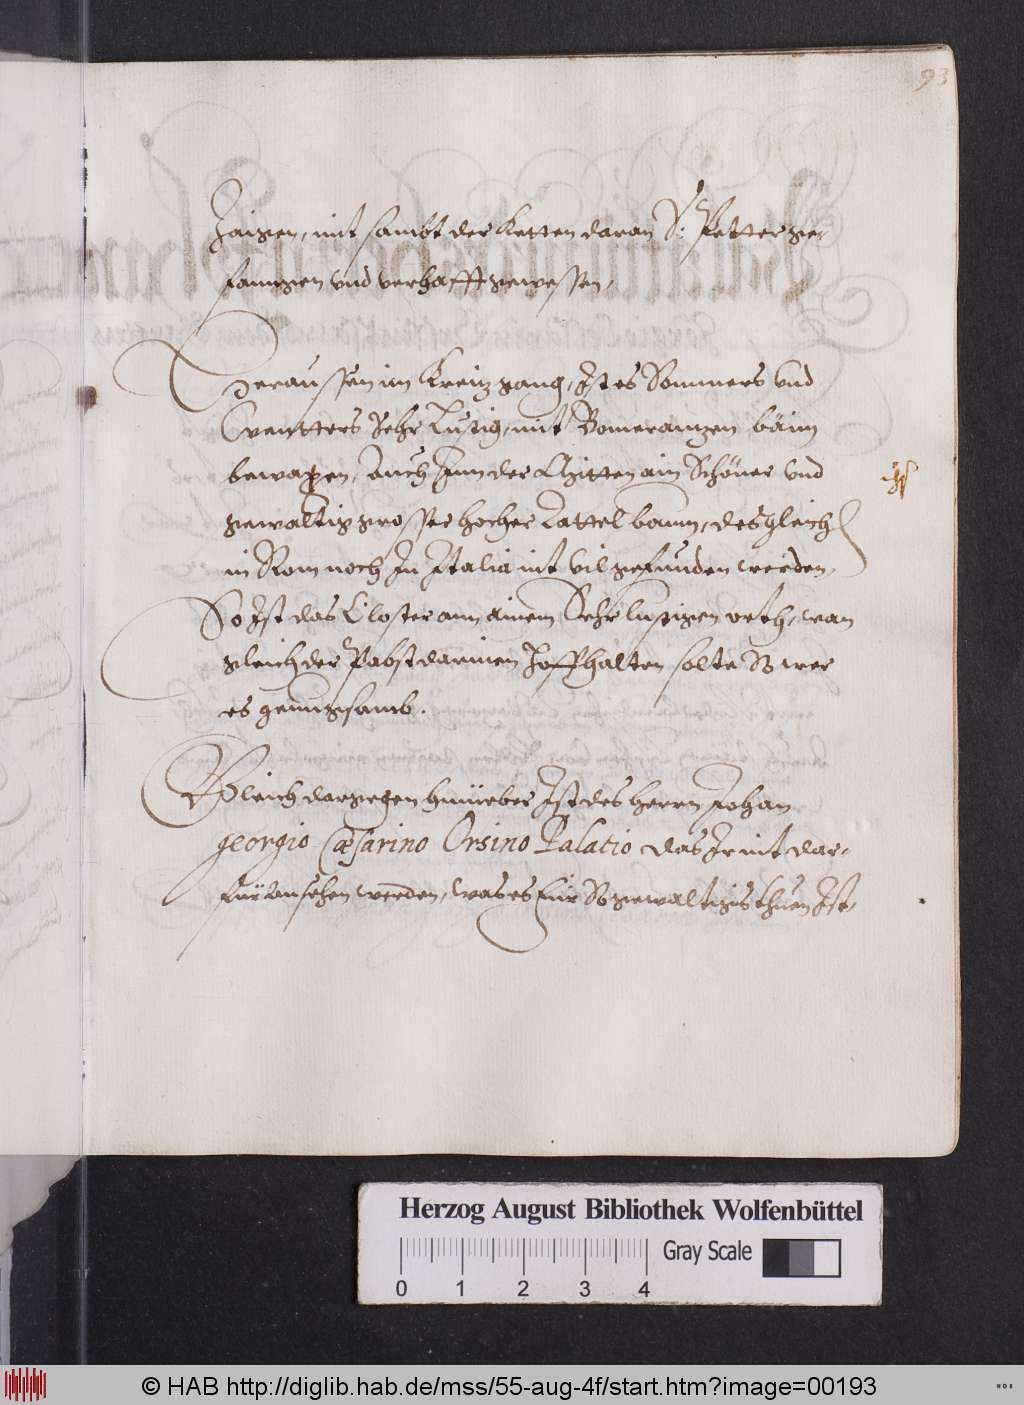 93
Zaigen, mit sambt der Ketten daran S: Petter ge-
fanngen vnd verhafft gewessen,
Deraussen im Kreizgang, Ist es Sommers vnd
Wintters Sehr Lustig, mit Bomeranzen bäim
bewaxen, Auch Inn der Mitten ain Schöner vnd
gewaltig grosser hocher Dattelbaum, desgleich
in Rom noch In Italia nit vil gefunden werden,
So Ist das Closter ann ainem Sehr lustigen orth, wan
gleich der Pabst darinen Hoffhalten solte So wer
es genuegsamb.
Gleich dargegen hinüeber Ist des herrn Johan
georgio Cæsarino Orsino Palatio das Ir nit dar-
für ansehen werden, was es für So gewaltigs thuen Ist,
Herzog August Bibliothek Wolfenbüttel
Gray Scale
0 1 2 3 4
© HAB http://diglib.hab.de/mss/55-aug-4f/start.htm?image=00193